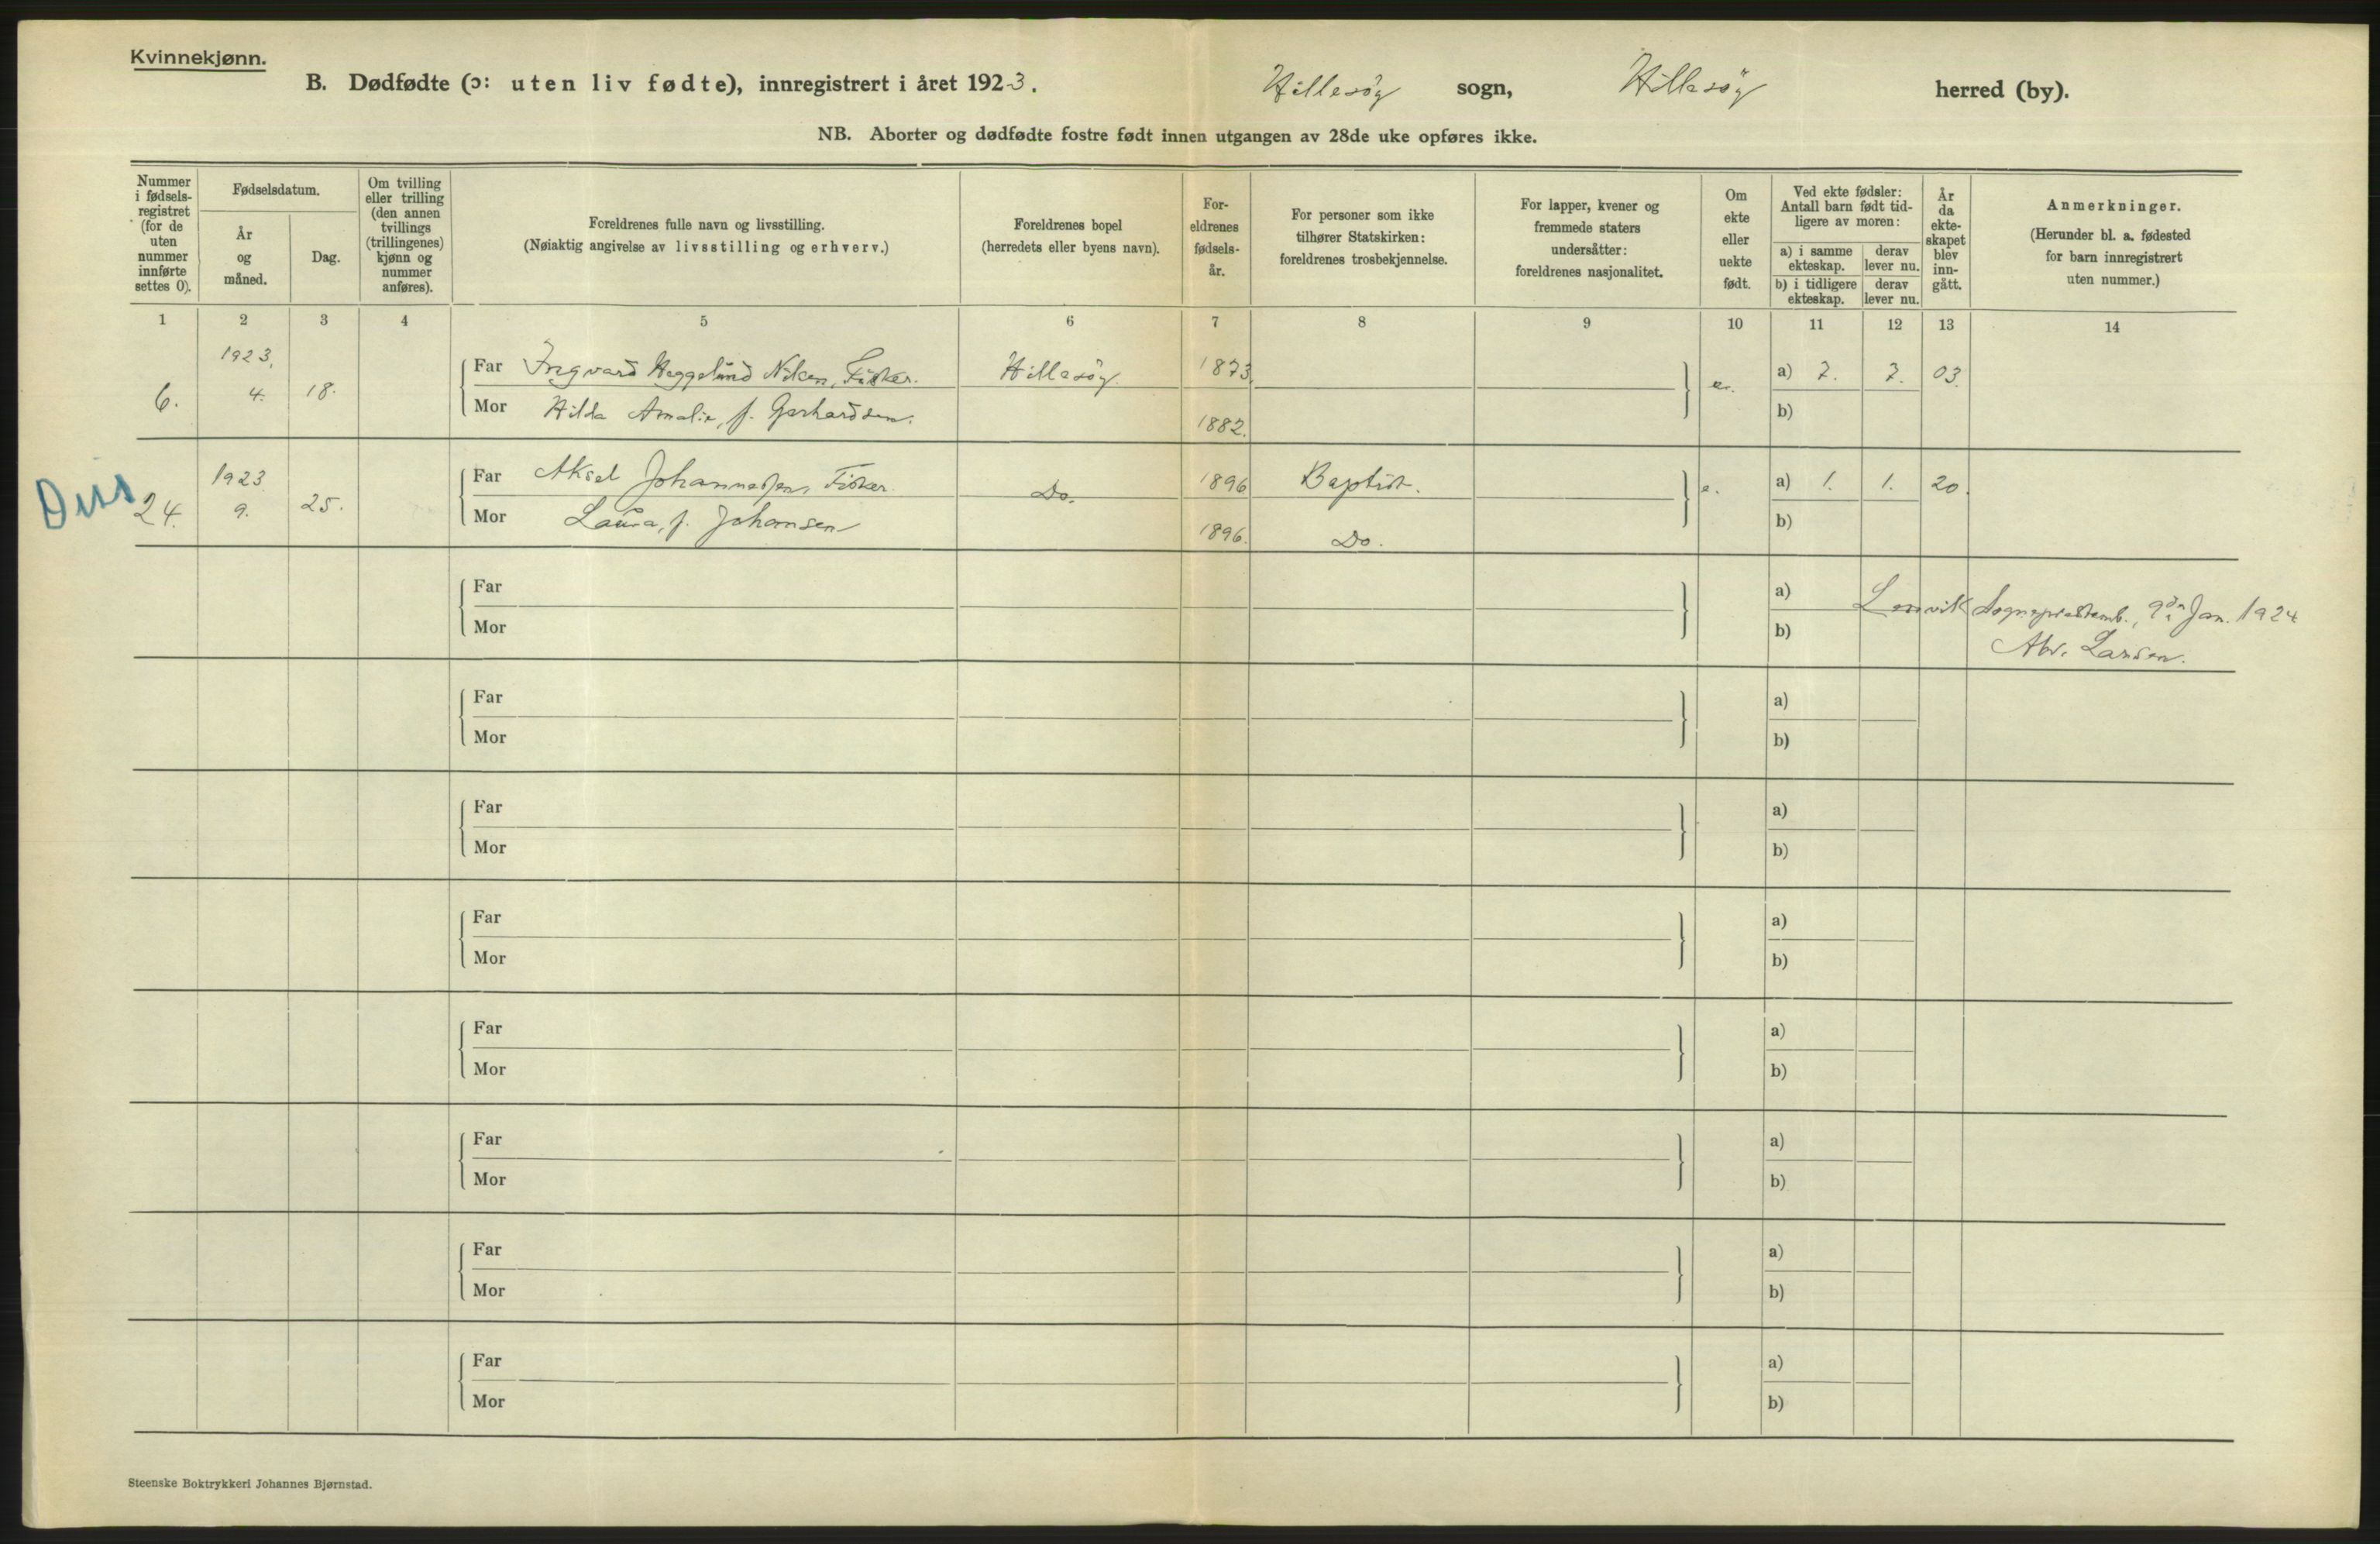 Kvinnekjønn.
B. Dødfødte (ɔ: uten liv fødte), innregistrert i året 1923. Hillesøy sogn, Hillesøy herred (by).
NB. Aborter og dødfødte fostre født innen utgangen av 28de uke opføres ikke.
Nummer i fødsels-registret (for de uten nummer innførte settes 0).
Fødselsdatum.
År og måned.
Dag.
Om tvilling eller trilling (den annen tvillings (trillingenes) kjønn og nummer anføres).
Foreldrenes fulle navn og livsstilling.
(Nøiaktig angivelse av livsstilling og erhverv.)
Foreldrenes bopel
(herredets eller byens navn).
For-eldrenes fødsels-år.
For personer som ikke tilhører Statskirken: foreldrenes trosbekjennelse.
For lapper, kvener og fremmede staters undersåtter: foreldrenes nasjonalitet.
Om ekte eller uekte født.
Ved ekte fødsler: Antall barn født tid-ligere av moren:
a) i samme ekteskap. derav lever nu.
b) i tidligere ekteskap. derav lever nu.
År da ekte-skapet blev inn-gått.
Anmerkninger.
(Herunder bl. a. fødested for barn innregistrert uten nummer.)
1 2 3 4 5 6 7 8 9 10 11 12 13 14
6. 1923, 4. 18. Far Ingvard Heggelund Nilsen, Fisker. Hillesøy. 1873. e. a) 7. 7. 03.
Mor Hilda Amalie, f. Gerhardsen. 1882. b)
24. 1923 9. 25. Far Aksel Johannessen, Fisker. Do. 1896 Baptist. e. a) 1. 1. 20.
Mor Laura, f. Johansen 1896. Do. b)
Far a)
Mor b)
Lenvik Sogneprestemb., 9de Jan. 1924
Alv. Larsen.
Far a)
Mor b)
Far a)
Mor b)
Far a)
Mor b)
Far a)
Mor b)
Far a)
Mor b)
Far a)
Mor b)
Far a)
Mor b)
Steenske Boktrykkeri Johannes Bjørnstad.